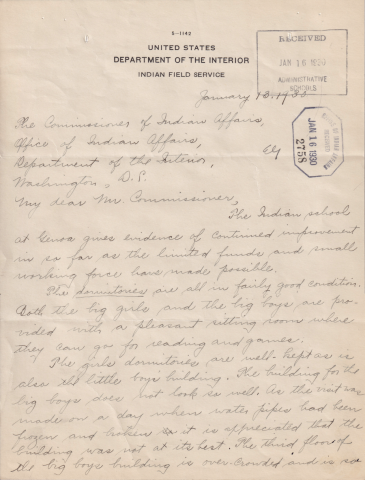 5-1142
UNITED STATES
DEPARTMENT OF THE INTERIOR
INDIAN FIELD SERVICE
RECEIVED
JAN 16 1930
ADMINISTRATIVE
SCHOOLS
January 13, 1930
The Commissioner of Indian Affairs,
Office of Indian Affairs,
Department of the Interior,
Washington, D.C.
JAN 16 1930
2758
My dear Mr. Commissioner,
The Indian school
at Genoa gives evidence of continued improvement
in so far as the limited funds and small
working force have made possible.
The dormitories are all in fairly good condition.
Both the big girls and the big boys are pro-
vided with a pleasant sitting room where
they can go for reading and games.
The girls' dormitories are well-kept as is
also the little boys building. The building for the
big boys does not look so well. As the visit was
made on a day when water pipes had been
frozen and broken it is appreciated that the
building was not at its best. The third floor of
the big boys building is over-crowded and is not